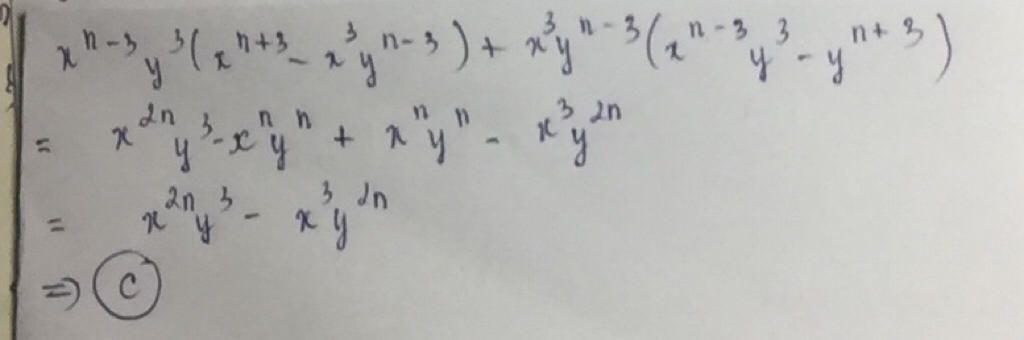 x^{n-3}y^3(x^{n+3} - x^3y^{n-3}) + x^3y^{n-3}(x^{n-3}y^3 - y^{n+3})
= x^{2n}y^3 - x^ny^n + x^ny^n - x^3y^{2n}
= x^{2n}y^3 - x^3y^{2n}
⇒ C